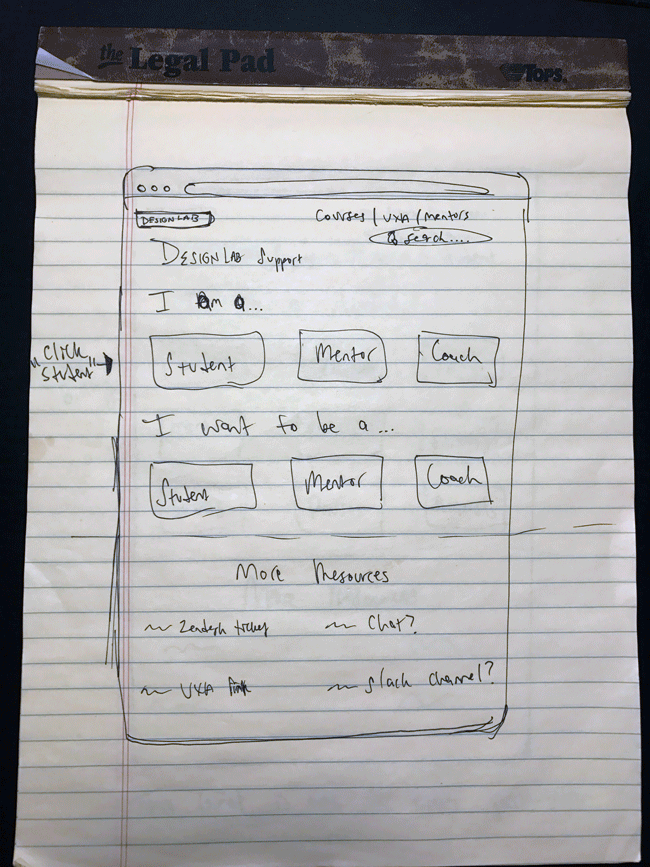 the Legal Pad
TOPS.
DESIGNLAB
Courses / UXA / Mentors
Search....
DESIGNLAB Support
I am a...
"click
Student"
Student
Mentor
Coach
I want to be a...
Student
Mentor
Coach
More Resources
~ Zendesk ticket
~ Chat?
~ UXA link
~ Slack channel?